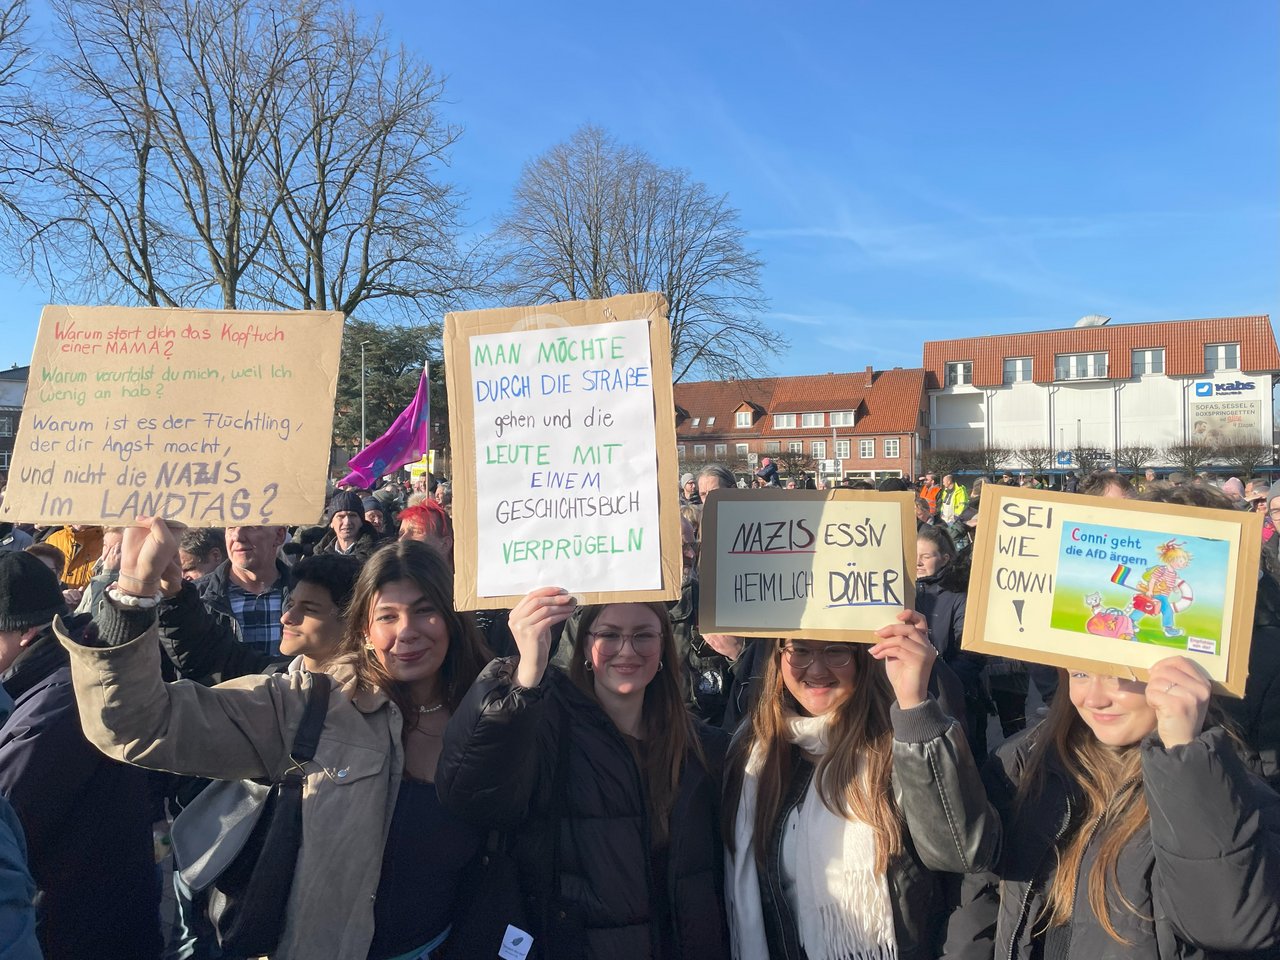 Warum stört dich das Kopftuch
einer MAMA?
Warum verurtelst du mich, weil Ich
Wenig an hab?
Warum ist es der Flüchtling,
der dir Angst macht,
und nicht die NAZIS
Im LANDTAG?
MAN MÖCHTE
DURCH DIE STRAßE
gehen und die
LEUTE MIT
EINEM
GESCHICHTSBUCH
VERPRÜGELN
NAZIS ESS'N
HEIMLICH DÖNER
SEI
WIE
CONNI
!
Conni geht
die AfD ärgern
Kabs
SOFAS, SESSEL &
BOXSPRINGBETTEN